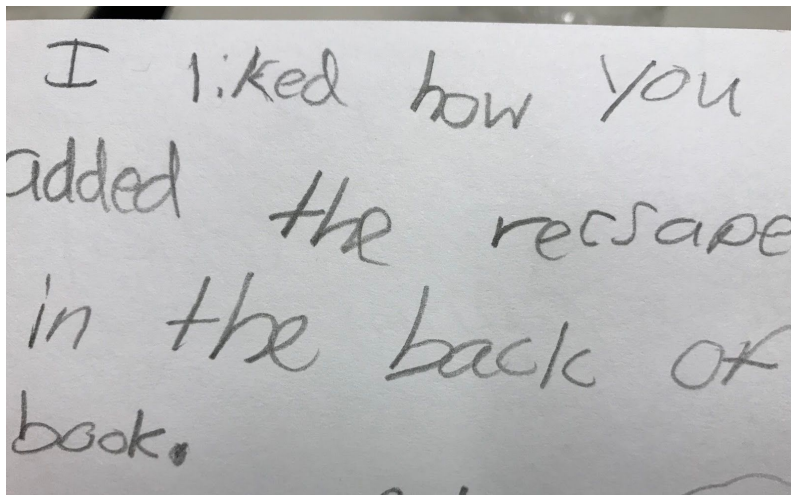 I liked how you
added the recsape
in the back of
book.